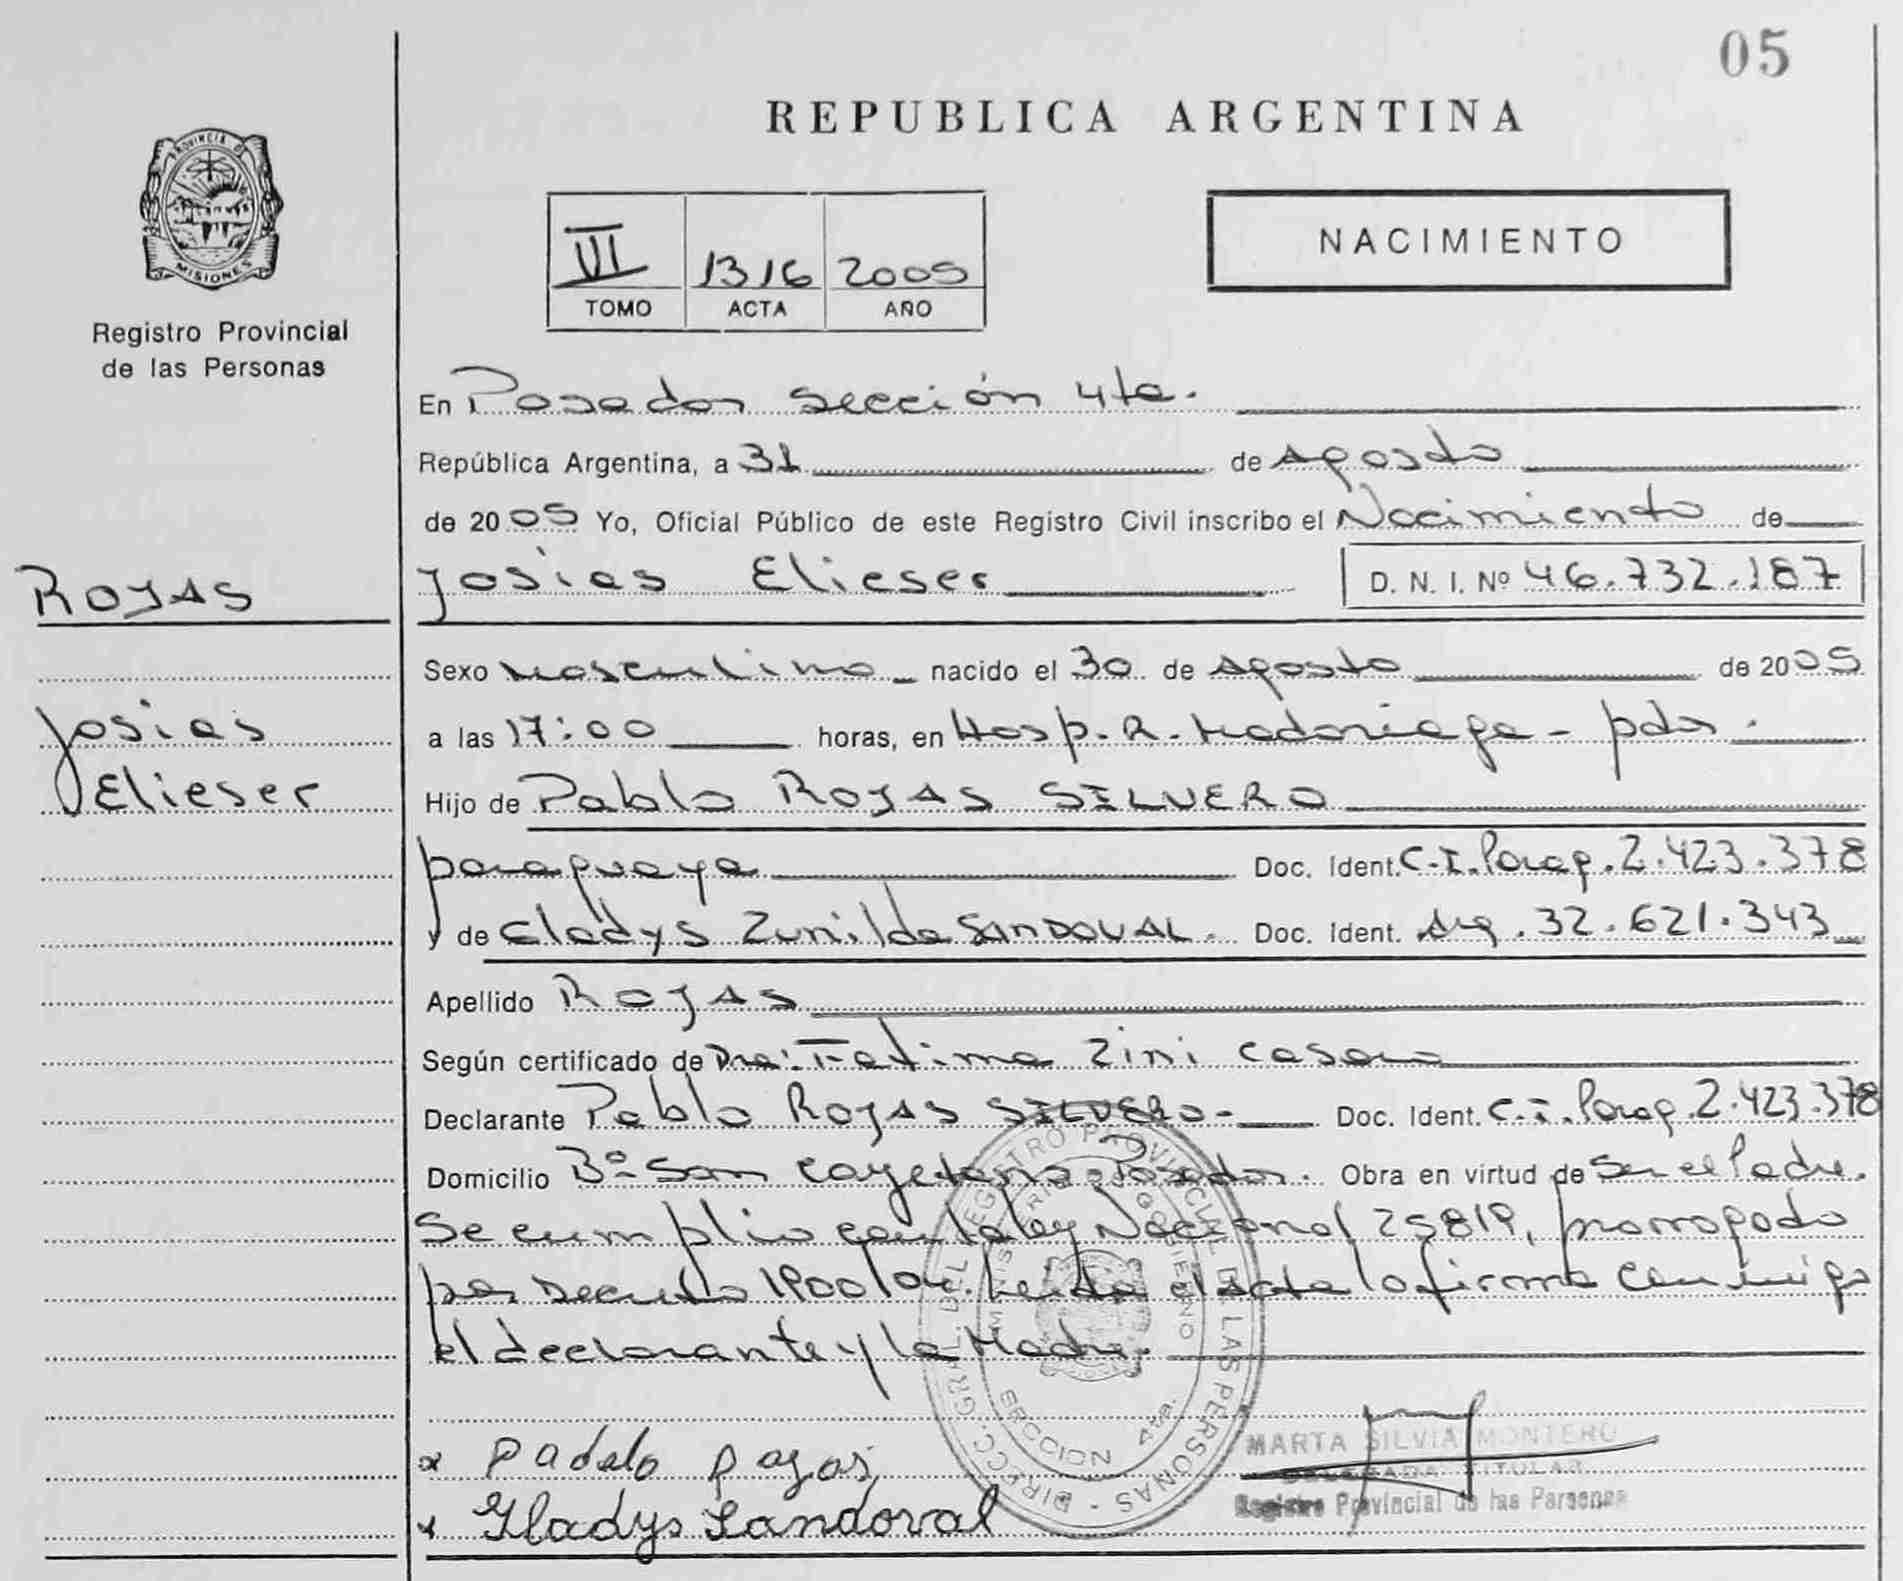 05
REPUBLICA ARGENTINA
PROVINCIA DE
MISIONES
Registro Provincial
de las Personas
VII 1316 2005
TOMO ACTA AÑO
NACIMIENTO
En Posadas sección 4ta.
República Argentina, a 31 de Agosto
de 2005 Yo, Oficial Público de este Registro Civil inscribo el Nacimiento de
ROJAS
Josias Elieser D. N. I. Nº 46.732.187
Sexo Masculino nacido el 30 de Agosto de 2005
Josias
a las 17:00 horas, en Hosp. R. Madariaga - pdas.
Elieser
Hijo de Pablo ROJAS SILVERO
paraguaya Doc. Ident. C.I. Parag. 2.423.378
y de Gladys Zunilda SANDOVAL. Doc. Ident. Arg. 32.621.343
Apellido ROJAS
Según certificado de Dra: Fatima Zini Casaro
Declarante Pablo ROJAS SILVERO- Doc. Ident. C.I. Parag. 2.423.378
Domicilio Bº San Cayetano-Posadas. Obra en virtud de Ser el Padre.
Se cumplio con la ley Nacional 25819, prorrogado
por Decreto 1900/04. Leida el acta lo firma conmigo
el declarante y la Madre.
DIRECC. GRAL. DEL REGISTRO PROVINCIAL DE LAS PERSONAS
MINISTERIO GOBIERNO
SECCION 4ta.
x Padolo Rojas
x Gladys Sandoval
MARTA SILVIA MONTERO
DELEGADA TITULAR
Registro Provincial de las Personas